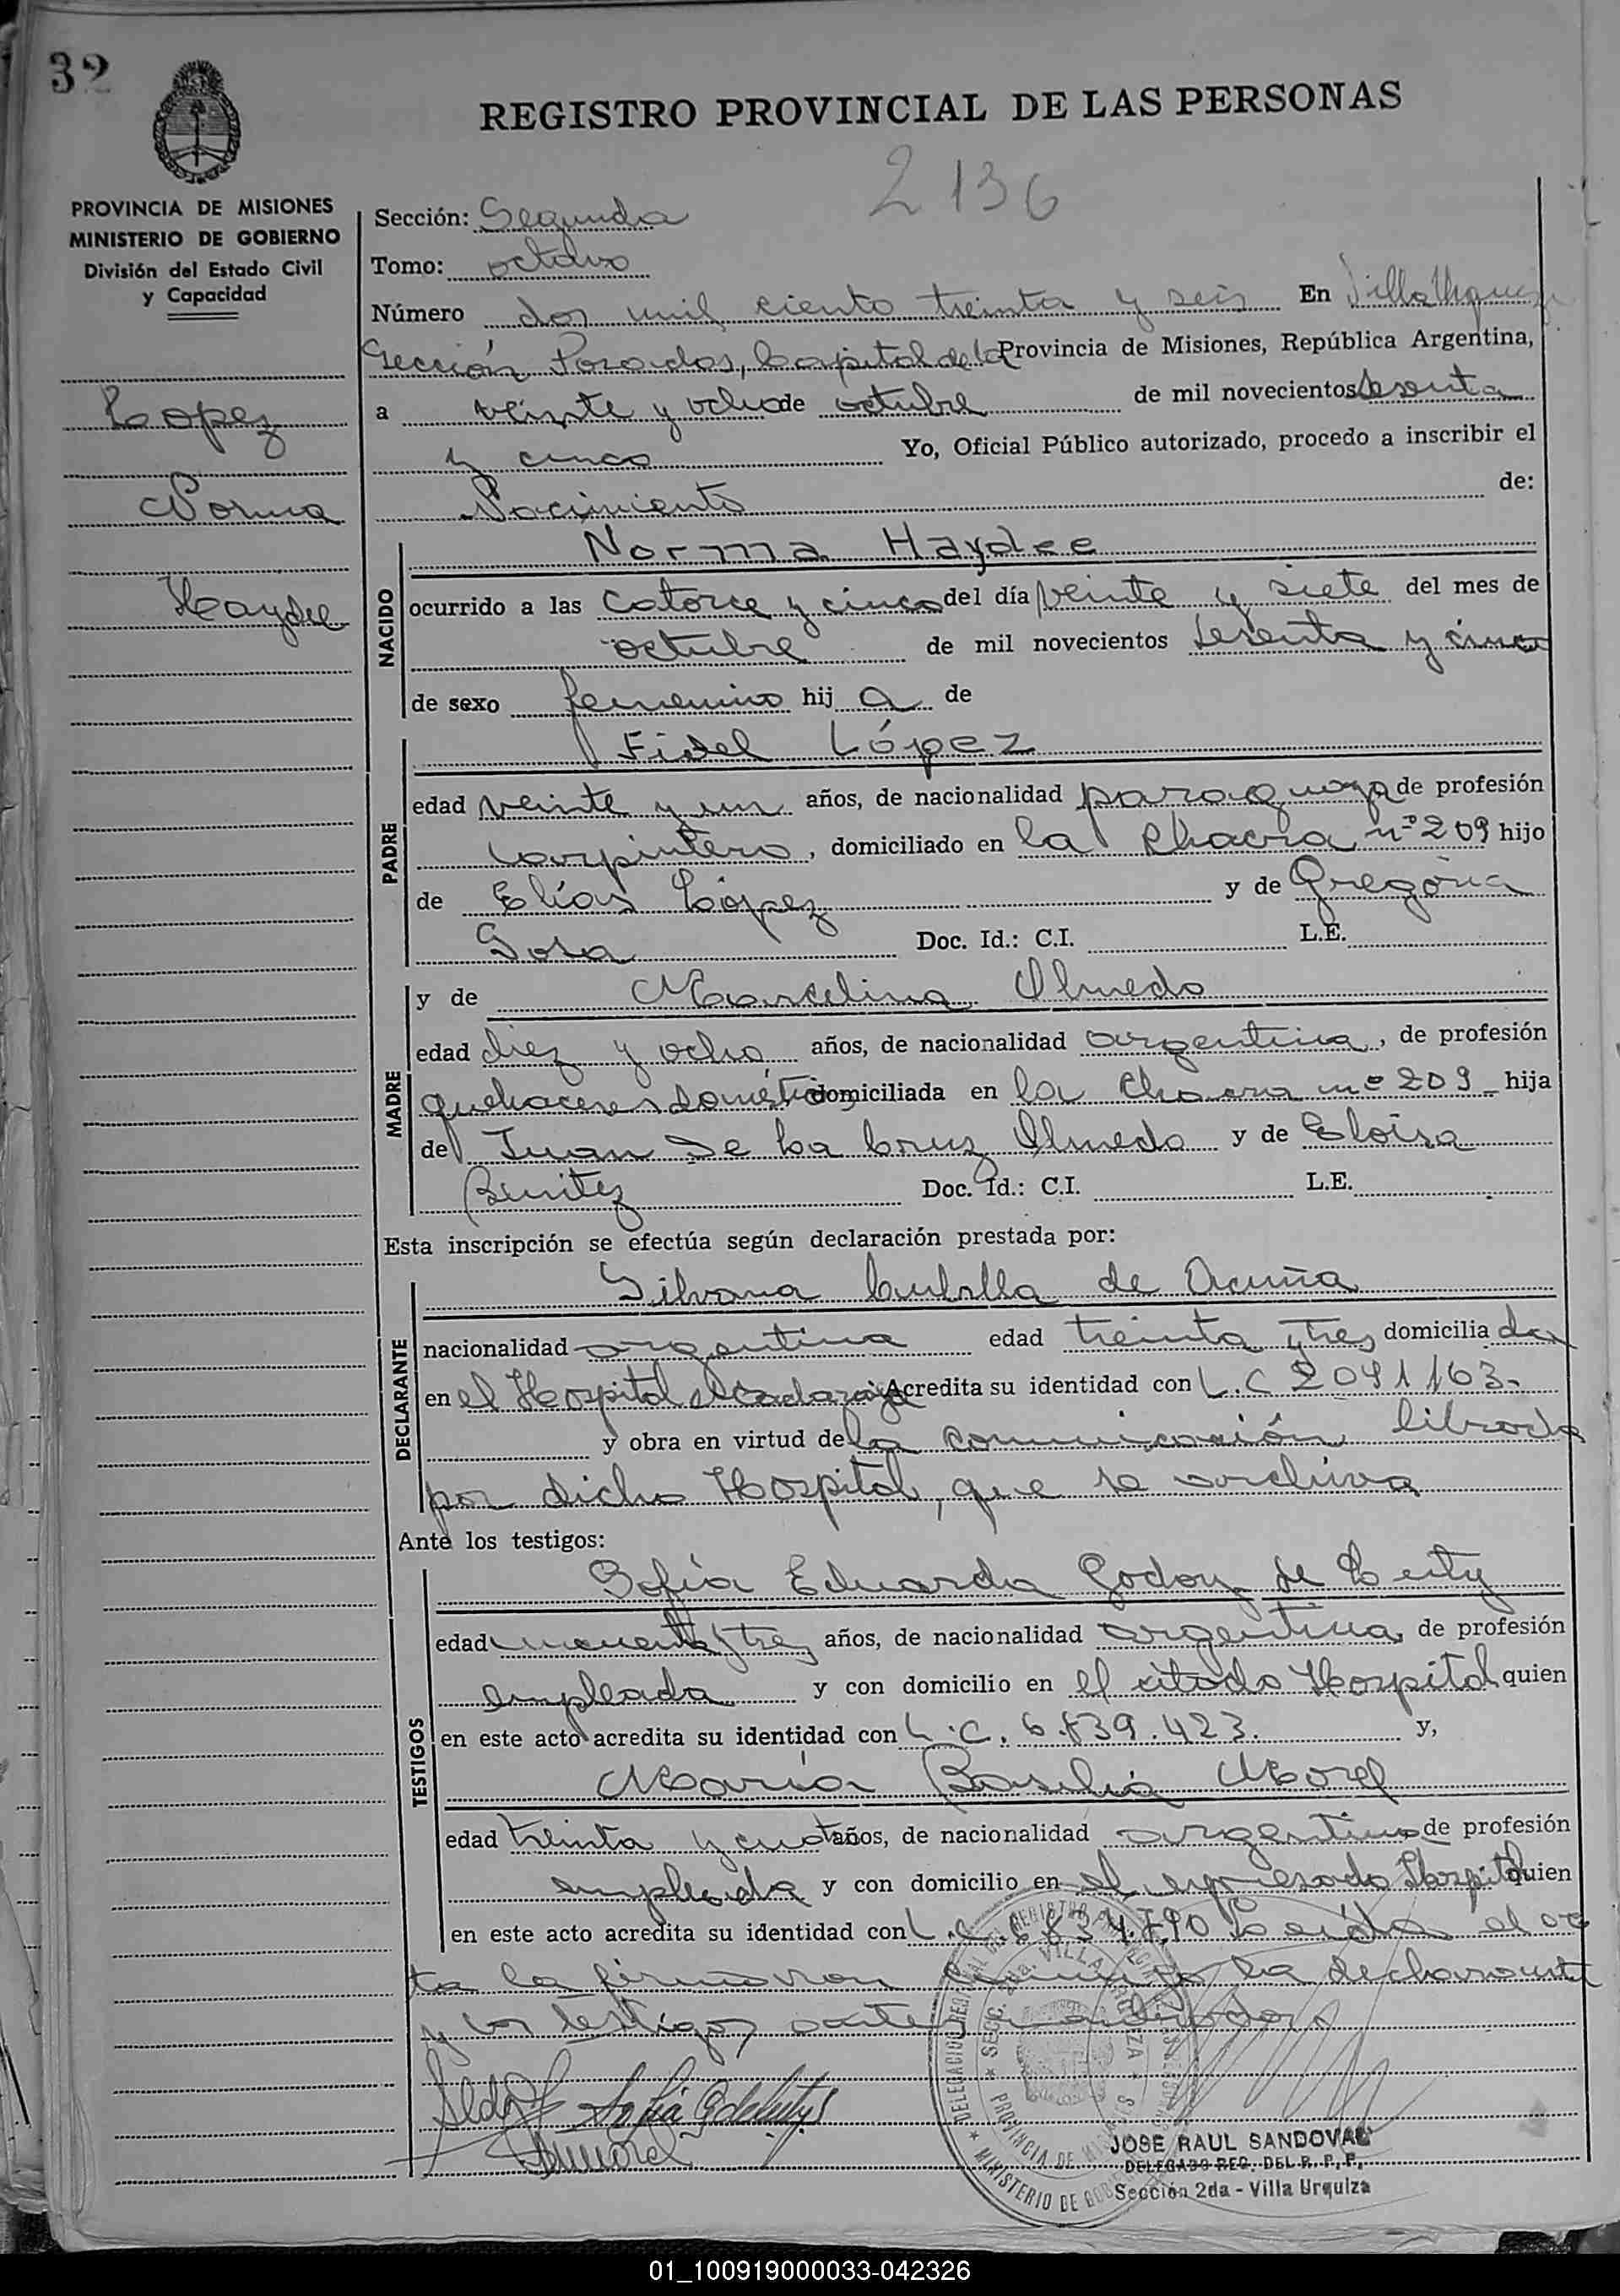 32
REGISTRO PROVINCIAL DE LAS PERSONAS
2136
PROVINCIA DE MISIONES
MINISTERIO DE GOBIERNO
División del Estado Civil
y Capacidad
Lopez
Norma
Haydee
Sección: Segunda
Tomo: octavo
Número dos mil ciento treinta y seis En Villa Urquiza
Sección Posadas, Capital de la Provincia de Misiones, República Argentina,
a veinte y ocho de octubre de mil novecientos sesenta
y cinco Yo, Oficial Público autorizado, procedo a inscribir el
Nacimiento de:
NACIDO
Norma Haydee
ocurrido a las catorce y cinco del día veinte y siete del mes de
octubre de mil novecientos sesenta y cinco
de sexo femenino hij a de
PADRE
Fidel López
edad veinte y un años, de nacionalidad paraguaya de profesión
carpintero, domiciliado en la Chacra nº 209 hijo
de Elías López y de Gregoria
Sosa Doc. Id.: C.I. L.E.
MADRE
y de Marcelina Olmedo
edad diez y ocho años, de nacionalidad argentina, de profesión
quehaceres domésticos domiciliada en la Chacra nº 209 hija
de Juan De La Cruz Olmedo y de Eloisa
Benitez Doc. Id.: C.I. L.E.
Esta inscripción se efectúa según declaración prestada por:
DECLARANTE
Silvana de Acuña
nacionalidad argentina edad treinta y tres domicilia da
en el Hospital Madariaga Acredita su identidad con L.C 2041163.
y obra en virtud de la comunicación librada
por dicho Hospital, que se archiva
Ante los testigos:
TESTIGOS
Sofía Eduarda Godoy de
edad y tres años, de nacionalidad argentina, de profesión
empleada y con domicilio en el citado Hospital quien
en este acto acredita su identidad con L.C. 6.839.423. y,
María Basilia Morel
edad treinta y cuatro años, de nacionalidad argentina de profesión
empleada y con domicilio en el expresado Hospital quien
en este acto acredita su identidad con L.C. Leída el ac
ta la firmaron conmigo la declarante
y los testigos antes nombrados
JOSE RAUL SANDOVAL
DELEGADO REG. DEL R. P. P.
Sección 2da - Villa Urquiza
01_100919000033-042326